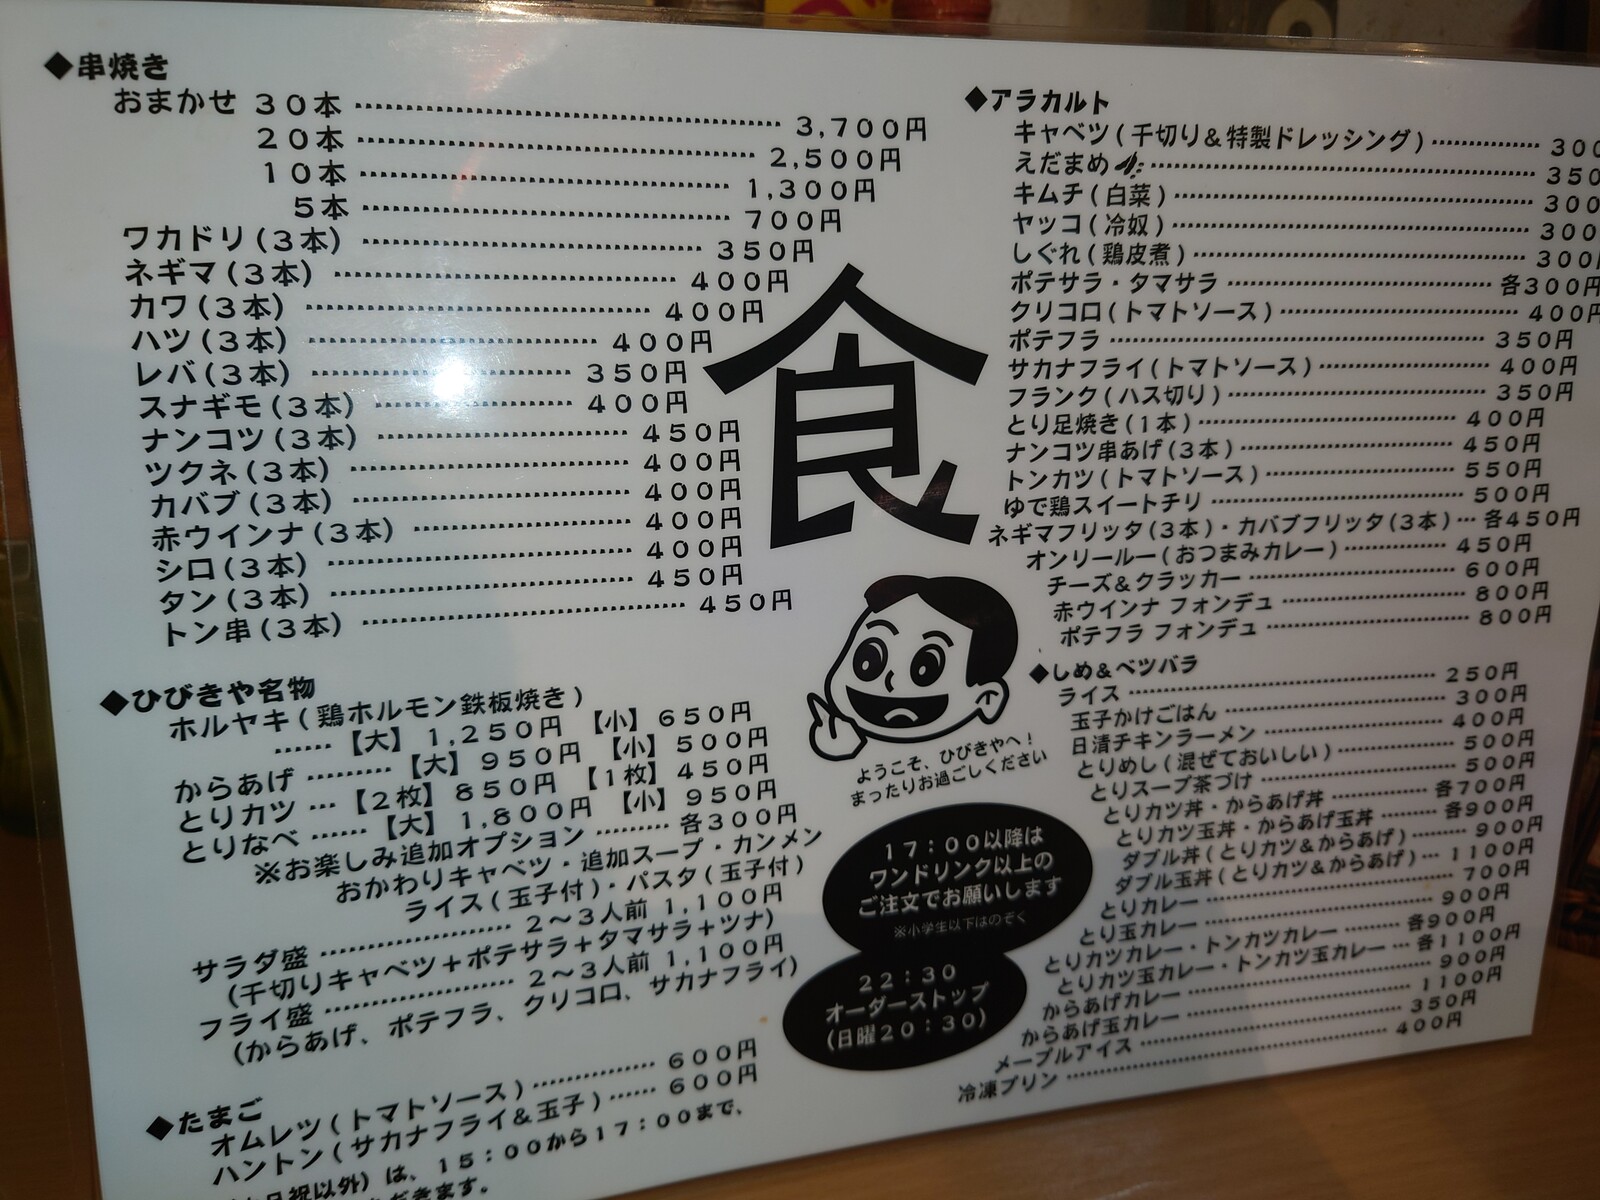 ◆串焼き
おまかせ 30本 3,700円
20本 2,500円
10本 1,300円
5本 700円
ワカドリ(3本) 350円
ネギマ(3本) 400円
カワ(3本) 400円
ハツ(3本) 400円
レバ(3本) 350円
スナギモ(3本) 400円
ナンコツ(3本) 450円
ツクネ(3本) 400円
カバブ(3本) 400円
赤ウインナ(3本) 400円
シロ(3本) 400円
タン(3本) 450円
トン串(3本) 450円
◆ひびきや名物
ホルヤキ(鶏ホルモン鉄板焼き)
……【大】1,250円【小】650円
からあげ ………【大】950円【小】500円
とりカツ …【2枚】850円【1枚】450円
とりなべ ……【大】1,800円【小】950円
※お楽しみ追加オプション ……… 各300円
おかわりキャベツ・追加スープ・カンメン
ライス(玉子付)・パスタ(玉子付)
サラダ盛 2〜3人前 1,100円
(千切りキャベツ+ポテサラ+タマサラ+ツナ)
フライ盛 2〜3人前 1,100円
(からあげ、ポテフラ、クリコロ、サカナフライ)
◆たまご
オムレツ(トマトソース) 600円
ハントン(サカナフライ&玉子) 600円
日祝以外)は、15:00から17:00まで、
だきます。
食
ようこそ、ひびきやへ!
まったりお過ごしください
17:00以降は
ワンドリンク以上の
ご注文でお願いします
※小学生以下はのぞく
22:30
オーダーストップ
(日曜20:30)
◆アラカルト
キャベツ(千切り&特製ドレッシング) 300
えだまめ 350
キムチ(白菜) 300
ヤッコ(冷奴) 300
しぐれ(鶏皮煮) 300円
ポテサラ・タマサラ 各300円
クリコロ(トマトソース) 400円
ポテフラ 350円
サカナフライ(トマトソース) 400円
フランク(ハス切り) 350円
とり足焼き(1本) 400円
ナンコツ串あげ(3本) 450円
トンカツ(トマトソース) 550円
ゆで鶏スイートチリ 500円
ネギマフリッタ(3本)・カバブフリッタ(3本)… 各450円
オンリールー(おつまみカレー) 450円
チーズ&クラッカー 600円
赤ウインナ フォンデュ 800円
ポテフラ フォンデュ 800円
◆しめ&ベツバラ
ライス 250円
玉子かけごはん 300円
日清チキンラーメン 400円
とりめし(混ぜておいしい) 500円
とりスープ茶づけ 500円
とりカツ丼・からあげ丼 各700円
とりカツ玉丼・からあげ玉丼 各900円
ダブル丼(とりカツ&からあげ) 900円
ダブル玉丼(とりカツ&からあげ)… 1100円
とりカレー 700円
とり玉カレー 900円
とりカツカレー・トンカツカレー 各900円
とりカツ玉カレー・トンカツ玉カレー … 各1100円
からあげカレー 900円
からあげ玉カレー 1100円
メープルアイス 350円
冷凍プリン 400円